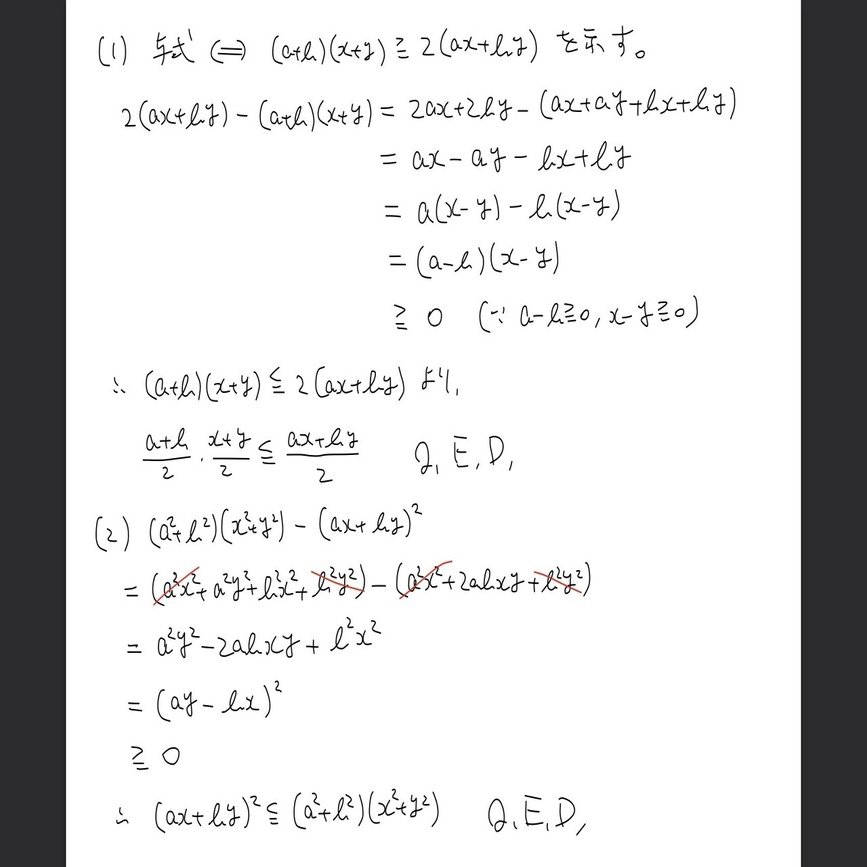 (1) 与式 ⟺ (a+b)(x+y) ≧ 2(ax+by) を示す。
2(ax+by) - (a+b)(x+y) = 2ax+2by - (ax+ay+bx+by)
= ax - ay - bx + by
= a(x-y) - b(x-y)
= (a-b)(x-y)
≧ 0 (∵ a-b≧0, x-y≧0)
∴ (a+b)(x+y) ≦ 2(ax+by) より,
(a+b)/2 · (x+y)/2 ≦ (ax+by)/2 Q,E,D,
(2) (a²+b²)(x²+y²) - (ax+by)²
= (a²x²+a²y²+b²x²+b²y²) - (a²x²+2abxy+b²y²)
= a²y² - 2abxy + b²x²
= (ay - bx)²
≧ 0
∴ (ax+by)² ≦ (a²+b²)(x²+y²) Q,E,D,